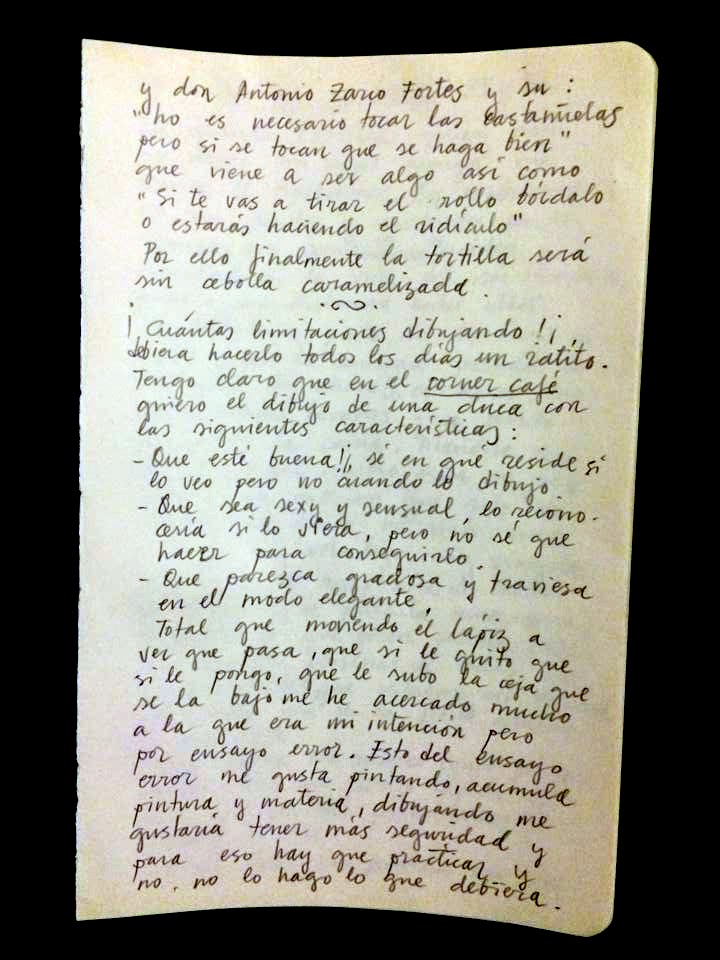 y don Antonio Zarco Fortes y su :
"no es necesario tocar las castañuelas
pero si se tocan que se haga bien"
que viene a ser algo así como
"Si te vas a tirar el rollo bórdalo
o estarás haciendo el ridículo"
Por ello finalmente la tortilla será
sin cebolla caramelizada.
¡Cuántas limitaciones dibujando!¡,
debiera hacerlo todos los días un ratito.
Tengo claro que en el corner café
quiero el dibujo de una chica con
las siguientes características:
- Que esté buena!¡, sé en qué reside si
lo veo pero no cuando lo dibujo
- Que sea sexy y sensual, lo recono-
cería si lo viera, pero no sé que
hacer para conseguirlo.
- Que parezca graciosa y traviesa
en el modo elegante.
Total que moviendo el lápiz a
ver que pasa, que si le quito que
si le pongo, que le subo la ceja que
se la bajo me he acercado mucho
a la que era mi intención pero
por ensayo error. Esto del ensayo
error me gusta pintando, acumula
pintura y materia, dibujando me
gustaría tener más seguridad y
para eso hay que practicar y
no. no lo hago lo que debiera.